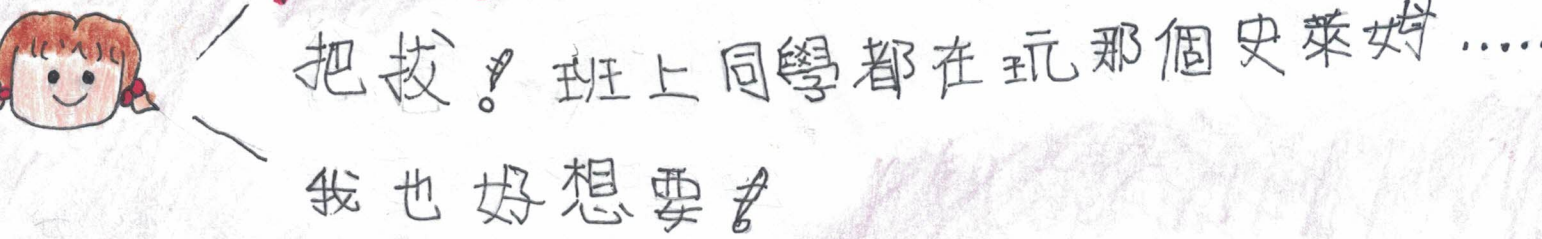 把拔！班上同學都在玩那個史萊姆.....
我也好想要！